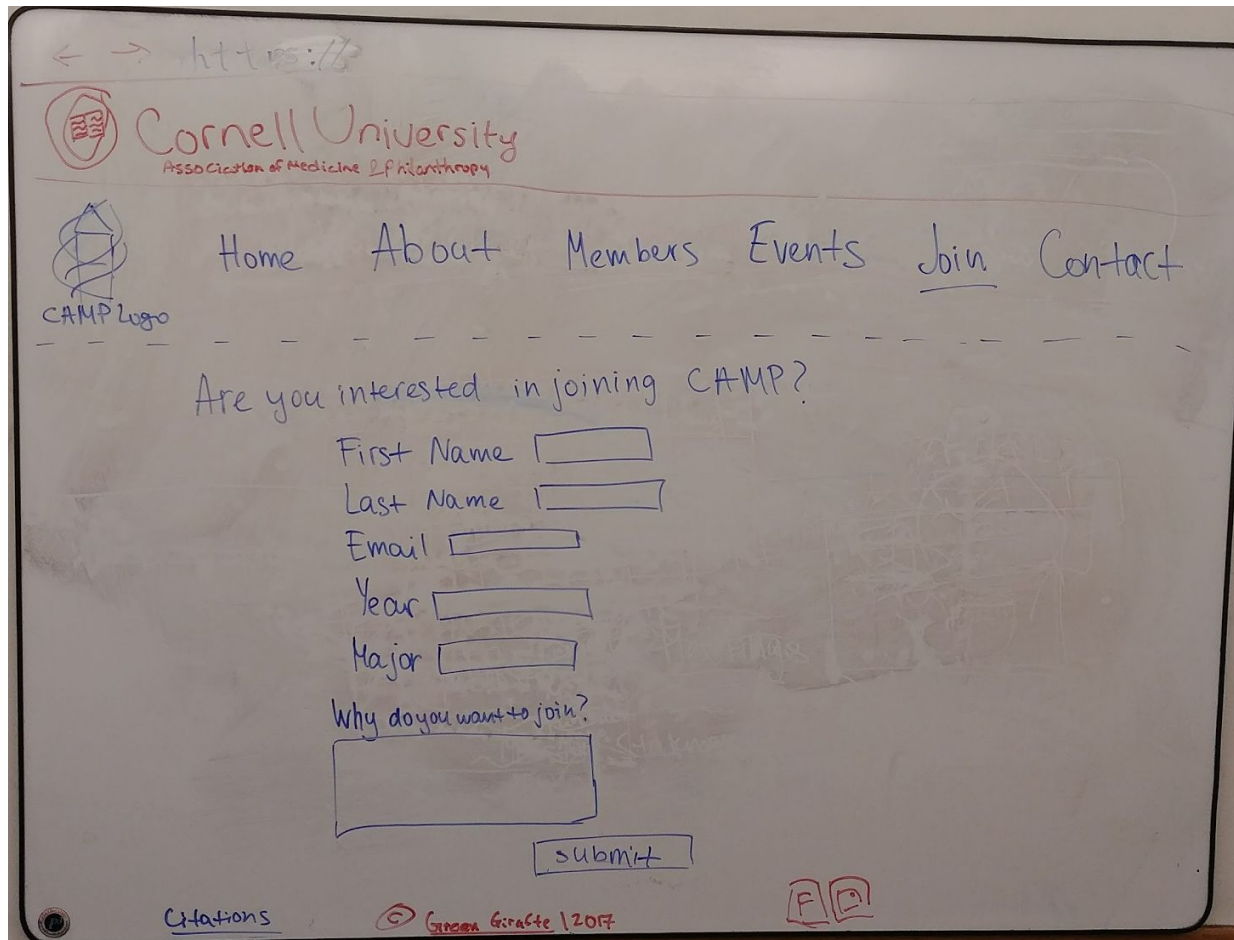 ← → https://
Cornell University
Association of Medicine & Philanthropy
Home About Members Events Join Contact
CAMP Logo
Are you interested in joining CAMP?
First Name
Last Name
Email
Year
Major
Why do you want to join?
submit
Citations © Green Giraffe | 2017 F